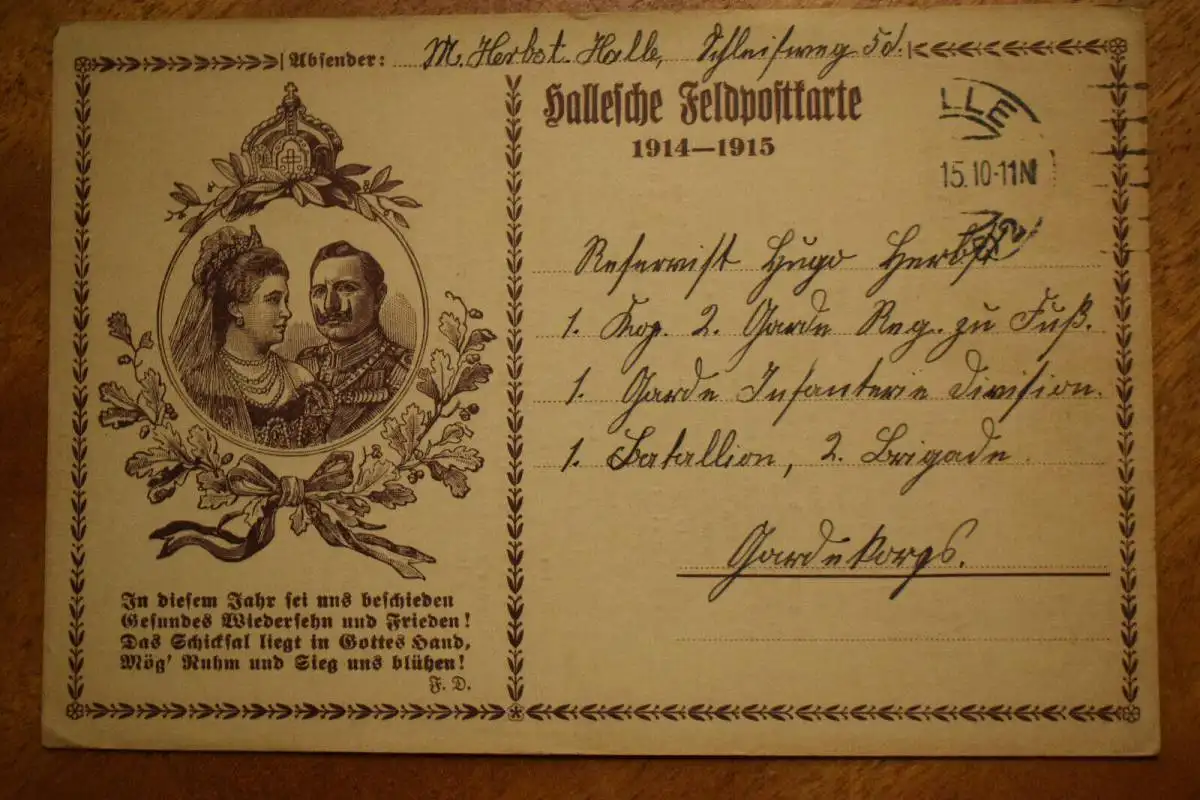 Absender: M. Herbst. Halle, Schleifweg 5d.
Hallesche Feldpostkarte
1914—1915
LLE
15.10-11N
2
Reservist Hugo Herbst
1. Kop. 2. Garde Reg. zu Fuß.
1. Garde Infanterie Division.
1. Batallion, 2. Brigade.
Gardekorps.
In diesem Jahr sei uns beschieden
Gesundes Wiedersehn und Frieden!
Das Schicksal liegt in Gottes Hand,
Mög' Ruhm und Sieg uns blühen!
F. D.